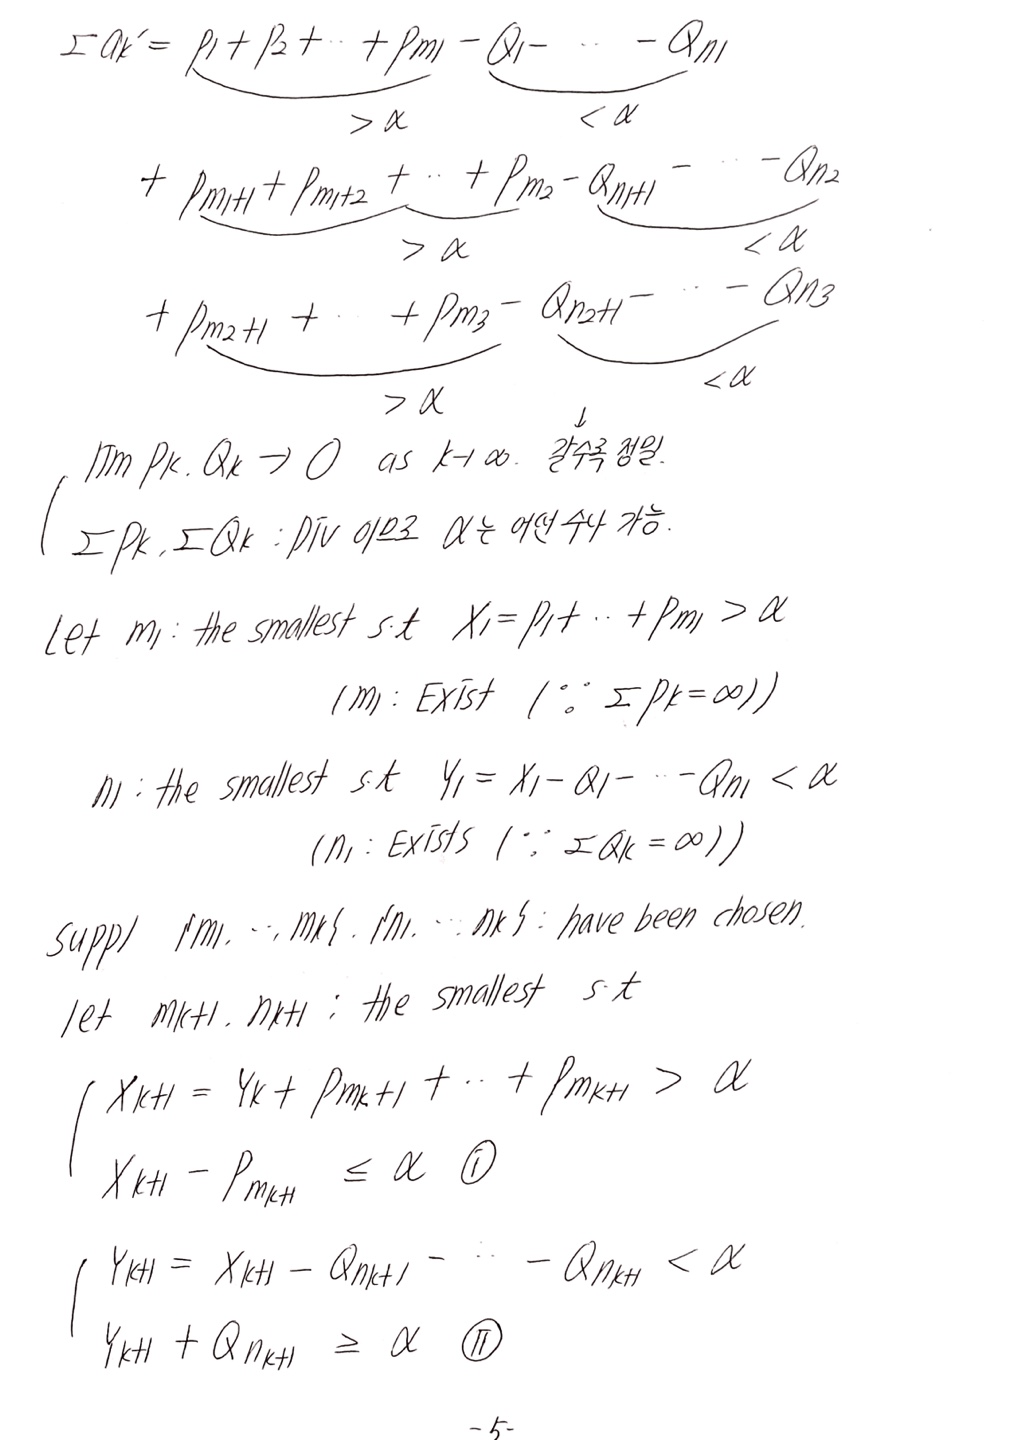 Σak' = p1 + p2 + ·· + pm1 - Q1 - ·· - Qn1
> α < α
+ pm1+1 + pm1+2 + ·· + pm2 - Qn1+1 - ·· - Qn2
> α < α
+ pm2+1 + ·· + pm3 - Qn2+1 - ·· - Qn3
> α < α
↓
lim pk, Qk → 0 as k→∞. 갈수록 정밀.
Σpk, ΣQk : Div 이므로 α는 어떤 수나 가능.
Let m1 : the smallest s.t X1 = p1 + ·· + pm1 > α
(m1 : Exist (∵ Σpk = ∞))
n1 : the smallest s.t Y1 = X1 - Q1 - ·· - Qn1 < α
(n1 : Exists (∵ ΣQk = ∞))
suppl {m1, ··, mk}, {n1, ··, nk} : have been chosen.
let mk+1, nk+1 : the smallest s.t
Xk+1 = Yk + pmk+1 + ·· + pmk+1 > α
Xk+1 - Pmk+1 ≤ α Ⓘ
Yk+1 = Xk+1 - Qnk+1 - ·· - Qnk+1 < α
Yk+1 + Qnk+1 ≥ α Ⅱ
-5-